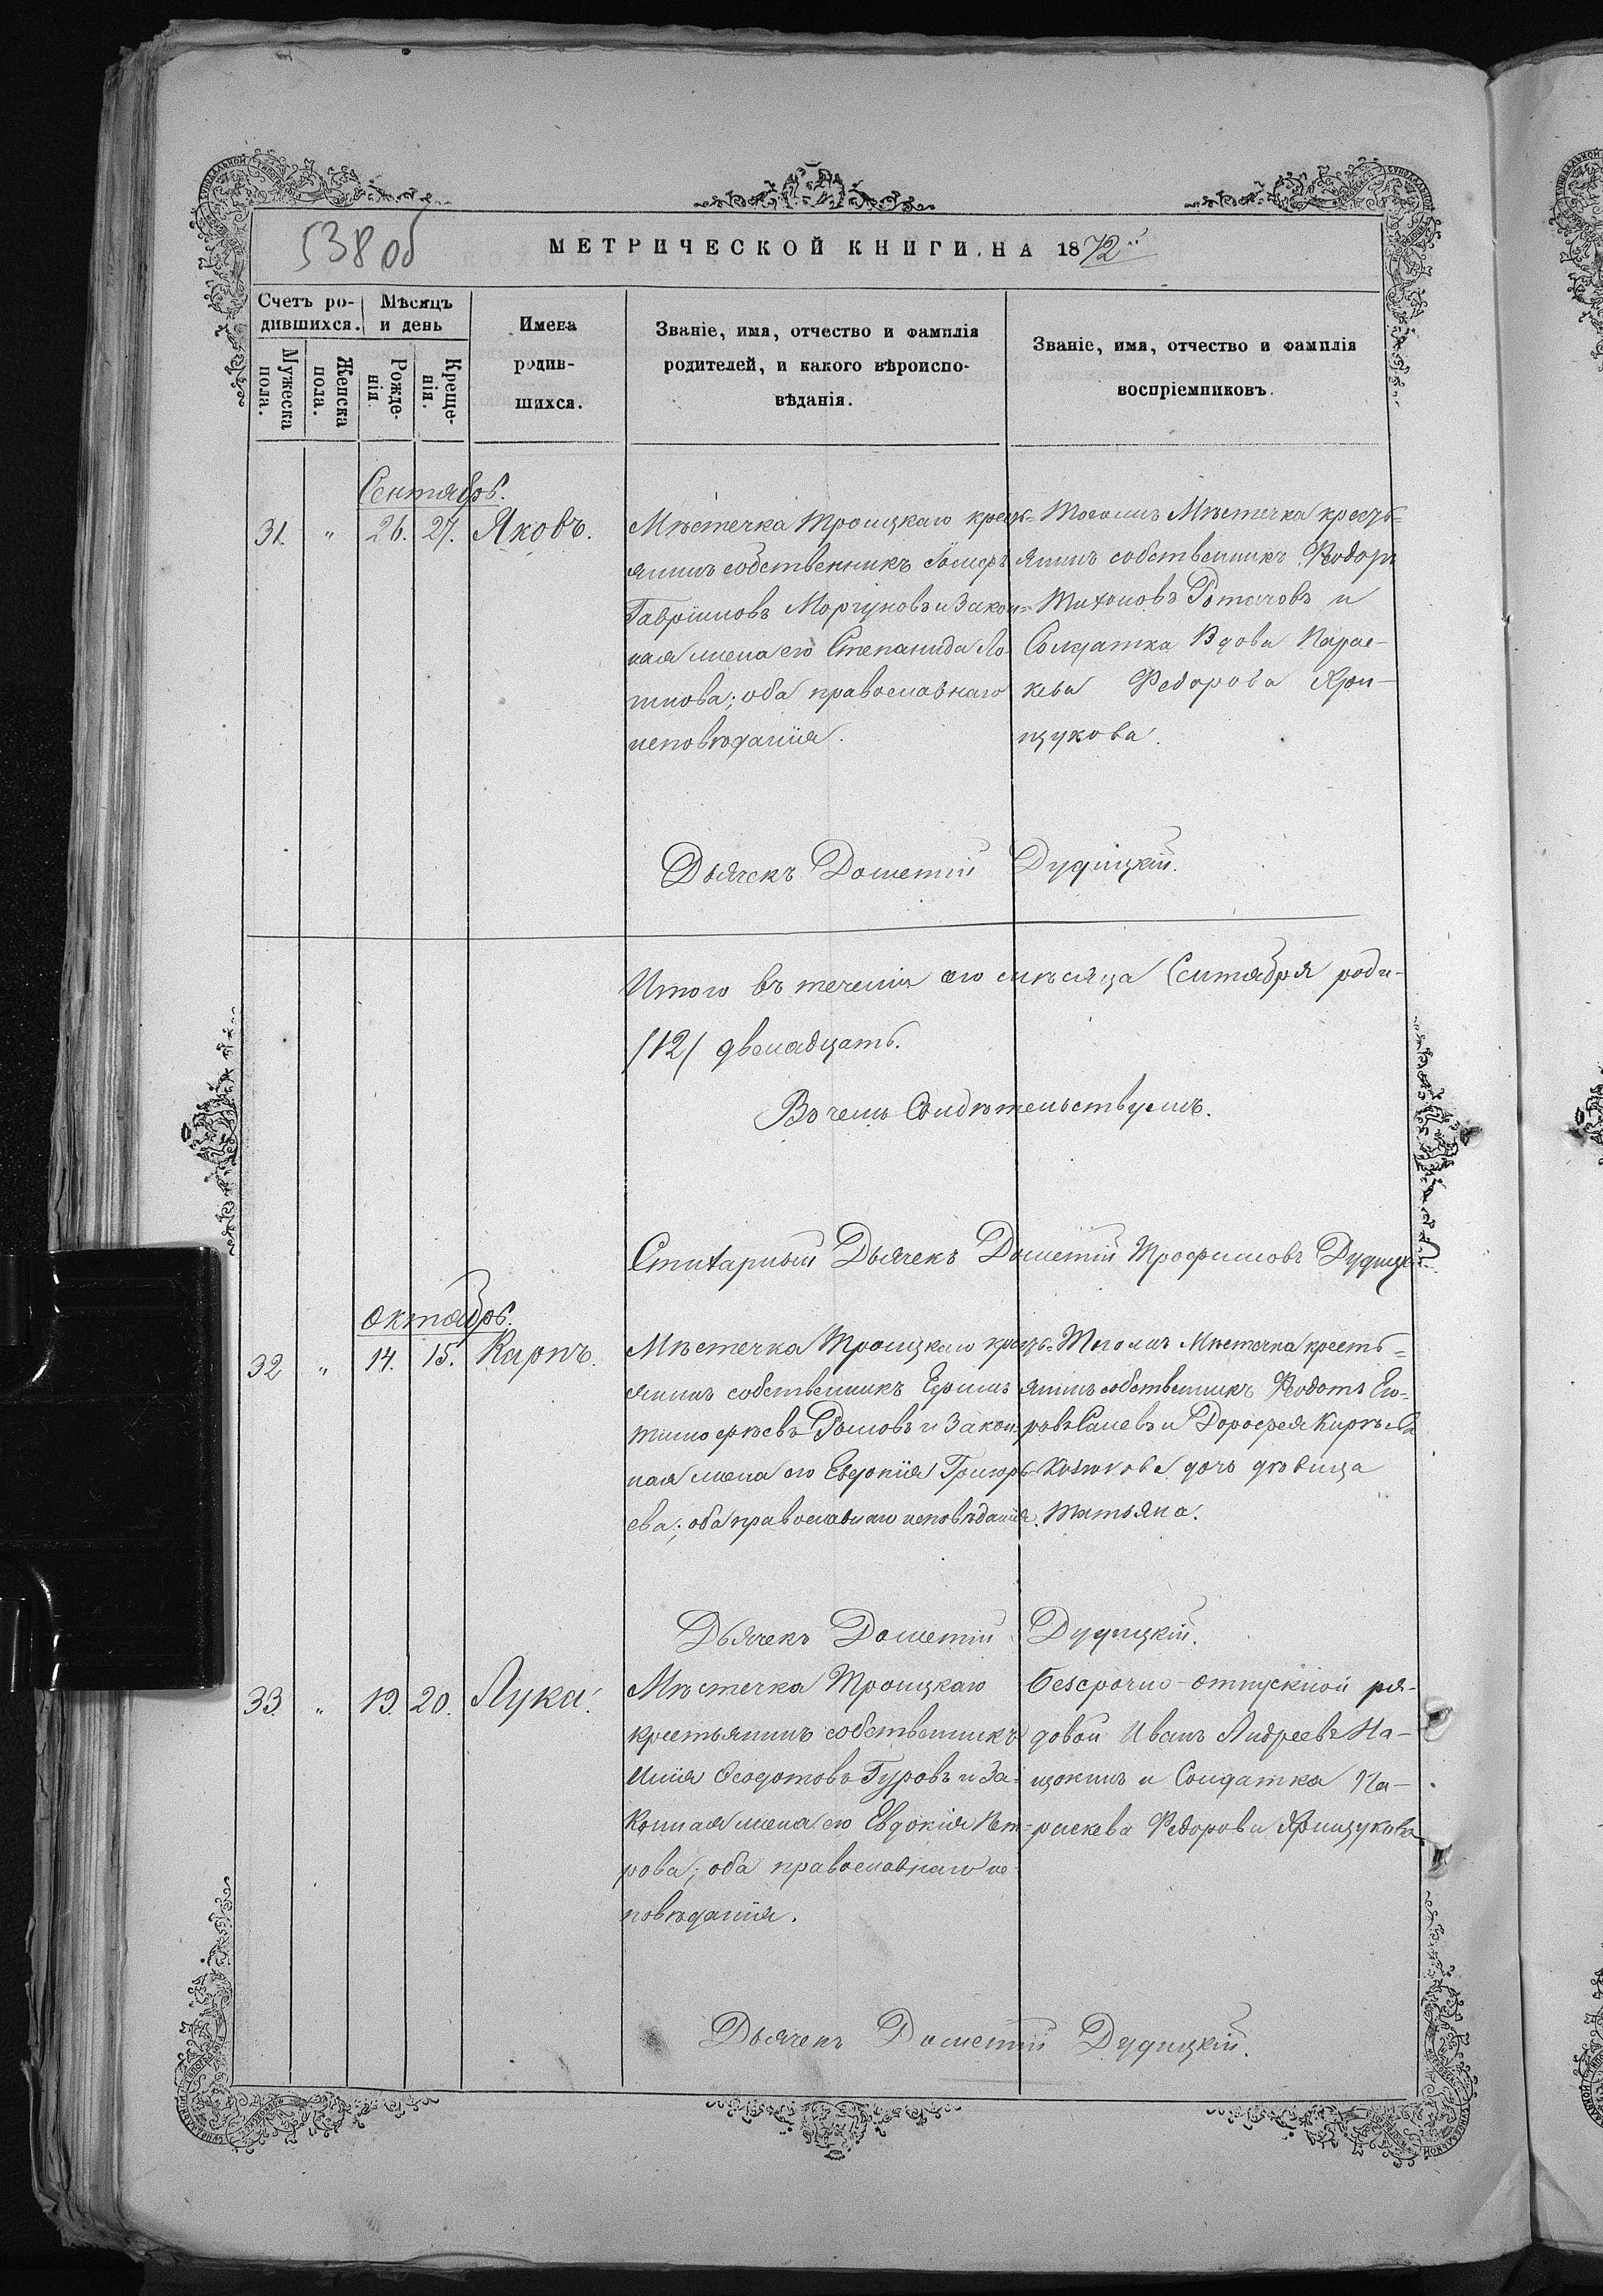 538 об
МЕТРИЧЕСКОЙ КНИГИ НА 1872й
Счетъ ро-
дившихся.
Мѣсяцъ
и день
Мужеска
пола.
Женска
пола.
Рожде-
нія
Креще-
нія.
Имена
родив-
шихся.
Званіе, имя, отчество и фамилія
родителей, и какого вѣроиспо-
вѣданія.
Званіе, имя, отчество и фамилія
воспріемниковъ.
Сентябрь.
31. " 26. 27. Яковъ.
Мѣстечка Троицкаго кресть=
янинъ собственникъ
Гавріиловъ Моргуновъ и Закон=
ная жена его Степанида Ло
гинова; оба православнаго
исповѣданія.
Тогожъ Мѣстечка кресть=
янинъ собственникъ Ѳеодоръ
Тихоновъ Ротаровъ и
Солдатка Вдова Парас-
кева Федорова
щукова.
Дьячекъ Дометій Дудицкій.
Итого въ теченіи его мѣсяца Сентября роди-
/12/ двенадцать.
Въ чемъ Свидѣтельствуемъ.
Дьячекъ Дометій Трофимовъ
Октябрь.
32 " 14. 15. Карпъ.
Мѣстечка Троицкаго кресть=
янинъ собственникъ
Тимофѣевъ и Закон=
ная жена его Евдокія Григорь-
ева; оба православнаго исповѣданія.
Тогожъ Мѣстечка кресть=
янинъ собственникъ Ѳеодотъ Его-
ровъ и Дорофея
дочь дѣвица
Татьяна.
Дьячекъ Дометій Дудицкій.
33. " 19. 20. Лука.
Мѣстечка Троицкаго
крестьянинъ собственникъ
Илія Ѳеодотовъ Гуровъ и За-
конная жена его Евдокія Пет=
рова; оба православнаго ис
повѣданія.
безсрочно-отпускной ря-
довой Иванъ Андреевъ На-
щокинъ и Солдатка Па-
раскева Федорова
Дьячекъ Дометій Дудицкій.